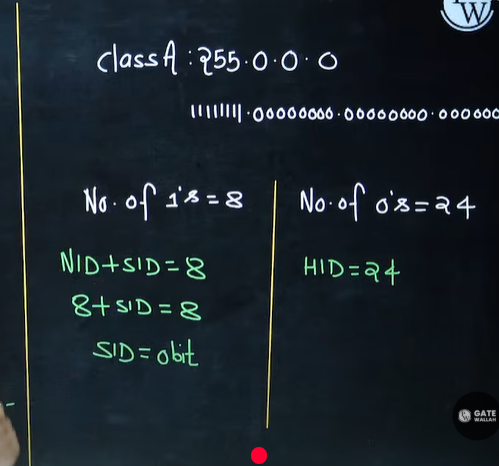 W
class A : 255.0.0.0
11111111.00000000.00000000.000000
No. of 1's = 8
NID+SID = 8
8+SID = 8
SID = 0bit
No. of 0's = 24
HID = 24
W GATE
WALLAH